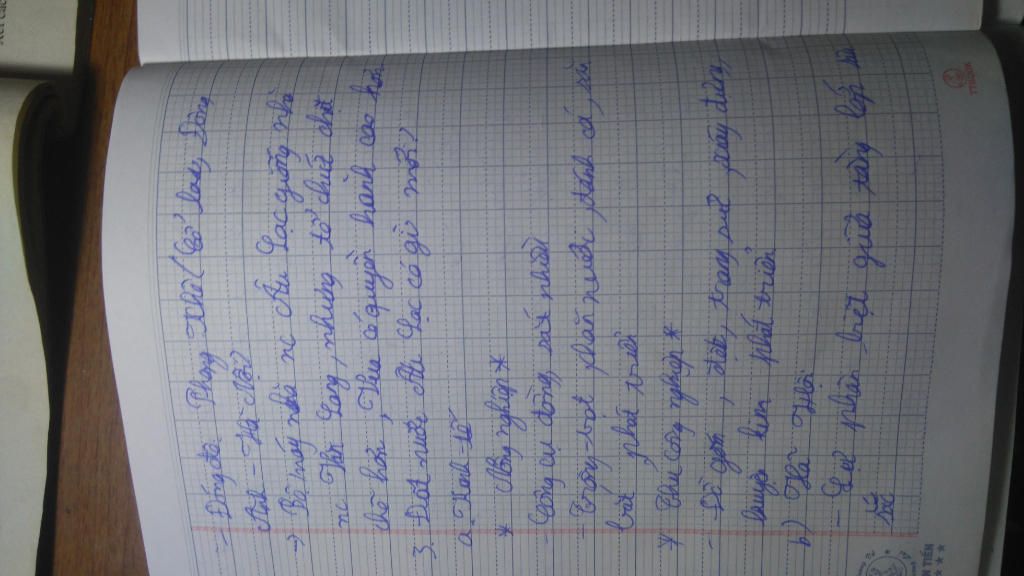 - Đóng đô: Phong Khê (Cổ Loa, Đông
Anh - Hà Nội)
-> Bộ máy nhà nc Âu Lạc giống nhà
nc Văn Lang, nhưng tổ chức chặt
chẽ hơn, Vua có quyền hành cao hơn
3. Đất nước Âu Lạc có gì mới?
a. Kinh tế
* Nông nghiệp *
- Công cụ đồng, sắt nhiều
- Trồng trọt, chăn nuôi, đánh cá, săn
bắt phát triển
* Thủ công nghiệp *
- Đồ gốm, dệt, trang sức, xây dựng,
luyện kim phát triển
b) Xã Hội
- Sự phân biệt giữa tầng lớp
sắc